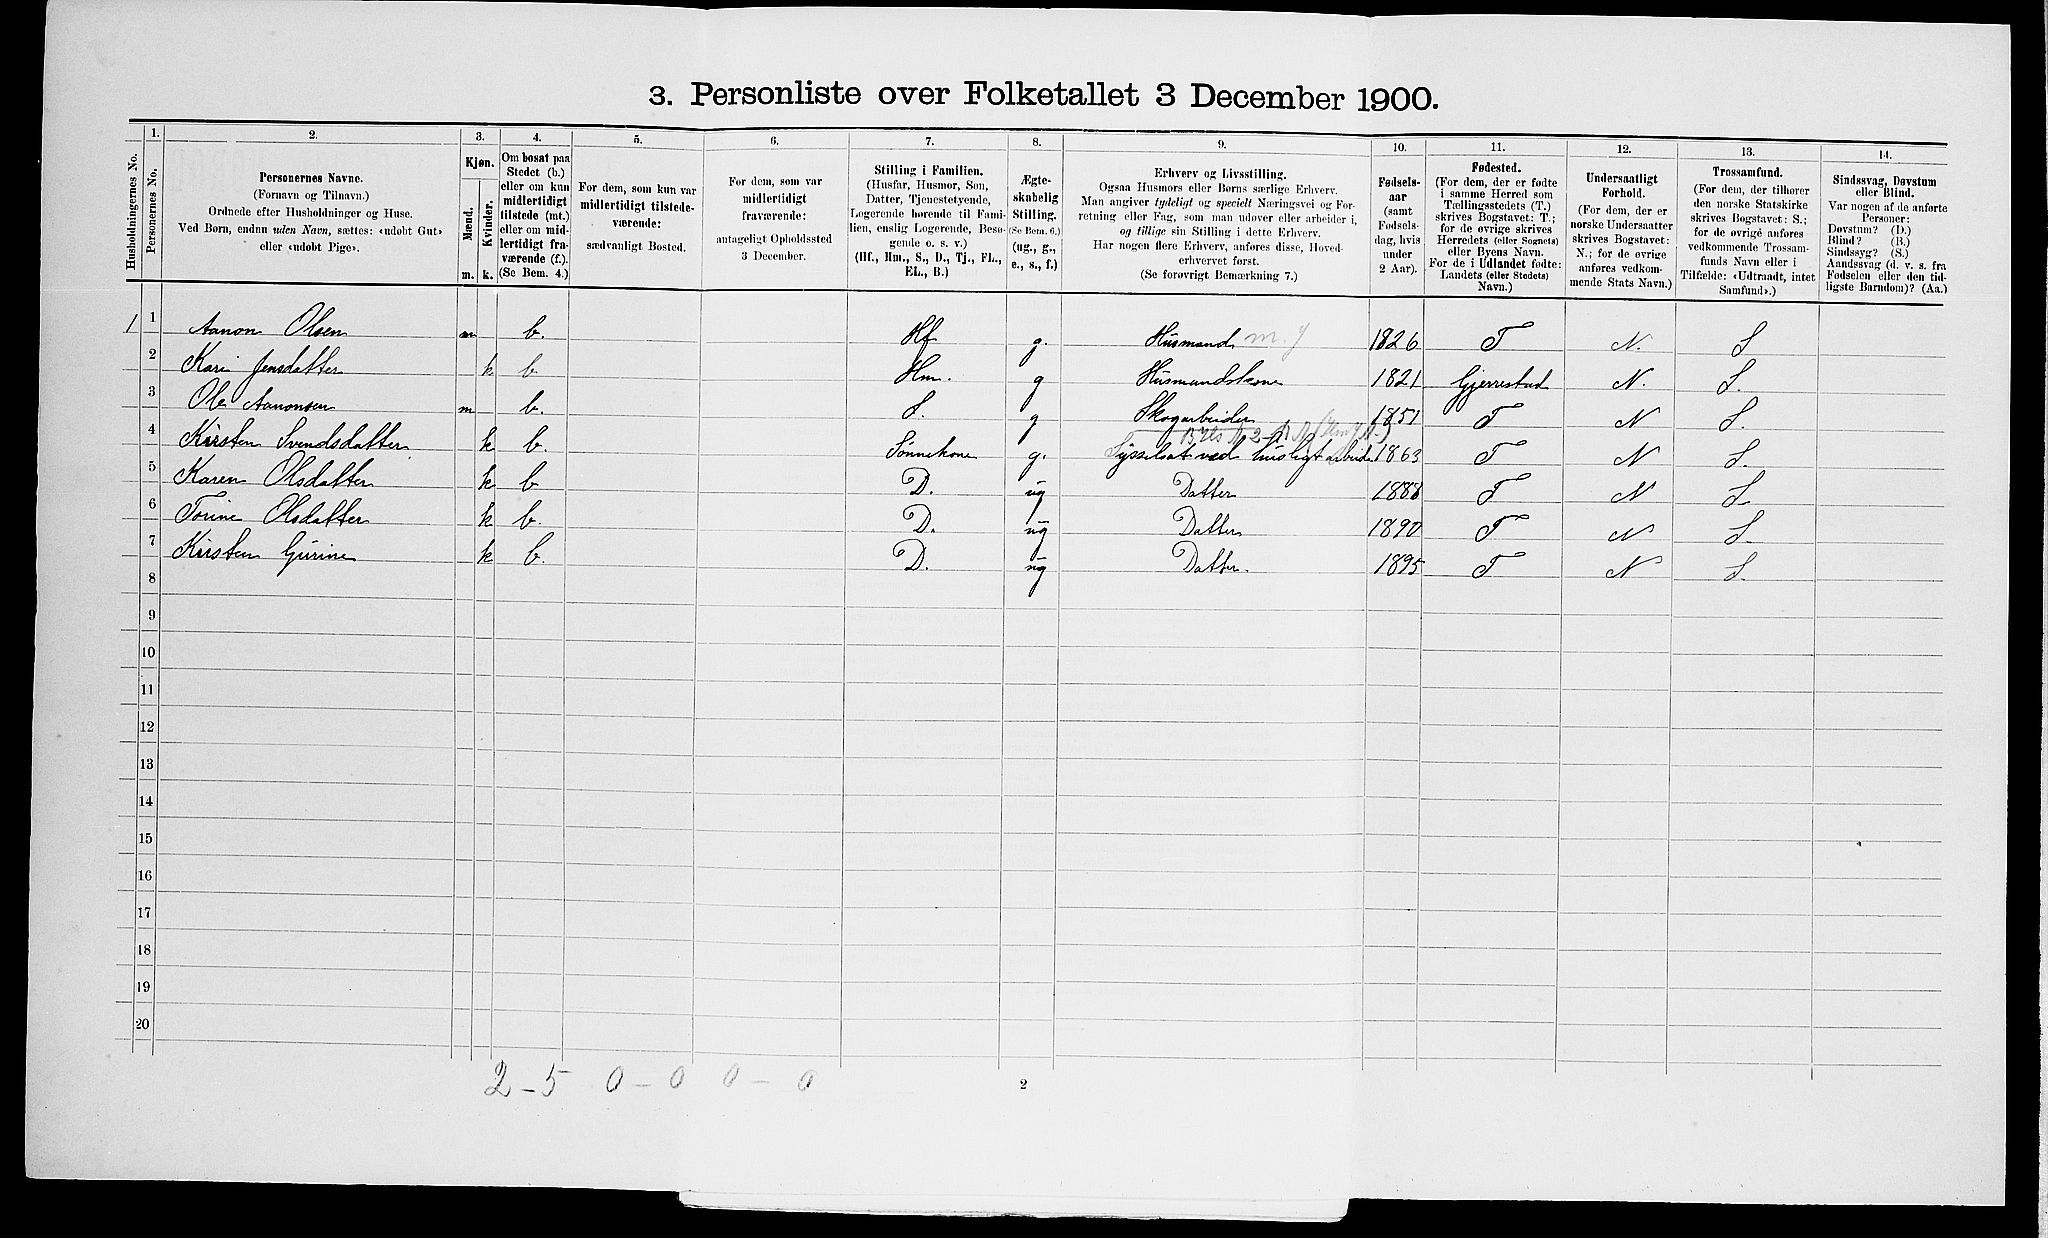 3. Personliste over Folketallet 3 December 1900.
Husholdningernes No.
1.
Personernes No.
2.
Personernes Navne.
(Fornavn og Tilnavn.)
Ordnede efter Husholdninger og Huse.
Ved Børn, endnu uden Navn, sættes: «udøbt Gut»
eller «udøbt Pige».
3.
Kjøn.
Mænd.
Kvinder.
m.
k.
4.
Om bosat paa
Stedet (b.)
eller om kun
midlertidigt
tilstede (mt.)
eller om mid-
lertidigt fra-
værende (f.).
(Se Bem. 4.)
5.
For dem, som kun var
midlertidigt tilstede-
værende:
sædvanligt Bosted.
6.
For dem, som var
midlertidigt
fraværende:
antageligt Opholdssted
3 December.
7.
Stilling i Familien.
(Husfar, Husmor, Søn,
Datter, Tjenestetyende,
Logerende hørende til Fami-
lien, enslig Logerende, Besø-
gende o. s. v.)
(Hf., Hm., S., D., Tj., FL.,
EL., B.)
8.
Ægte-
skabelig
Stilling.
(Se Bem. 6.)
(ug., g.,
e., s., f.)
9.
Erhverv og Livsstilling.
Ogsaa Husmors eller Børns særlige Erhverv.
Man angiver tydeligt og specielt Næringsvei og For-
retning eller Fag, som man udøver eller arbeider i,
og tillige sin Stilling i dette Erhverv.
Har nogen flere Erhverv, anføres disse, Hoved-
erhvervet først.
(Se forøvrigt Bemærkning 7.)
10.
Fødsels-
aar
(samt
Fødsels-
dag, hvis
under
2 Aar).
11.
Fødested.
(For dem, der er fødte
i samme Herred som
Tællingsstedets (T.)
skrives Bogstavet: T.;
for de øvrige skrives
Herredets (eller Sognets)
eller Byens Navn.
For de i Udlandet fødte:
Landets (eller Stedets)
Navn.)
12.
Undersaatligt
Forhold.
(For dem, der er
norske Undersaatter
skrives Bogstavet:
N.; for de øvrige
anføres vedkom-
mende Stats Navn.)
13.
Trossamfund.
(For dem, der tilhører
den norske Statskirke
skrives Bogstavet: S.;
for de øvrige anføres
vedkommende Trossam-
funds Navn eller i
Tilfælde: «Udtraadt, intet
Samfund».)
14.
Sindssvag, Døvstum
eller Blind.
Var nogen af de anførte
Personer:
Døvstum? (D.)
Blind? (B.)
Sindssyg? (S.)
Aandssvag (d. v. s. fra
Fødselen eller den tid-
ligste Barndom)? (Aa.)
1 1 Aanon Olsen m b. Hf g. Husmand m.j 1826 T N. S
2 Kari Jensdatter k b. Hm. g Husmandskone 1821 Gjerrestad N. S.
3 Ole Aanonsen m b. S. g Skogarbeider 1851 T N S.
4 Kirsten Svendsdatter k b. Sønnekone g. Sysselsat ved husligt arbeide 1863 T N S.
5 Karen Olsdatter k b D. ug Datter 1888 T N S
6 Torine Olsdatter k b. D. ug Datter 1890 T N S
7 Kirsten Gurine k b. D. ug Datter. 1895 T N S.
8
9
10
11
12
13
14
15
16
17
18
19
20
2 - 5 0 - 0 0 - 0
2